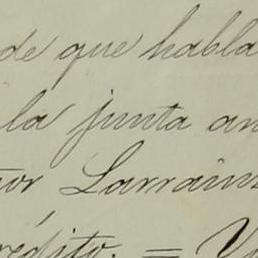 de que habla
la junta an
or Larrain
rédito. = Y